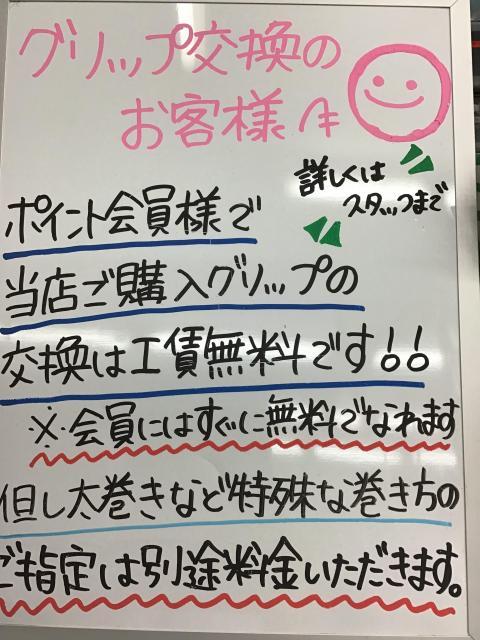 グリップ交換の
お客様へ
詳しくは
スタッフまで
ポイント会員様で
当店ご購入グリップの
交換は工賃無料です!!
※会員にはすぐに無料でなれます
但し太巻きなど特殊な巻き方の
ご指定は別途料金いただきます。